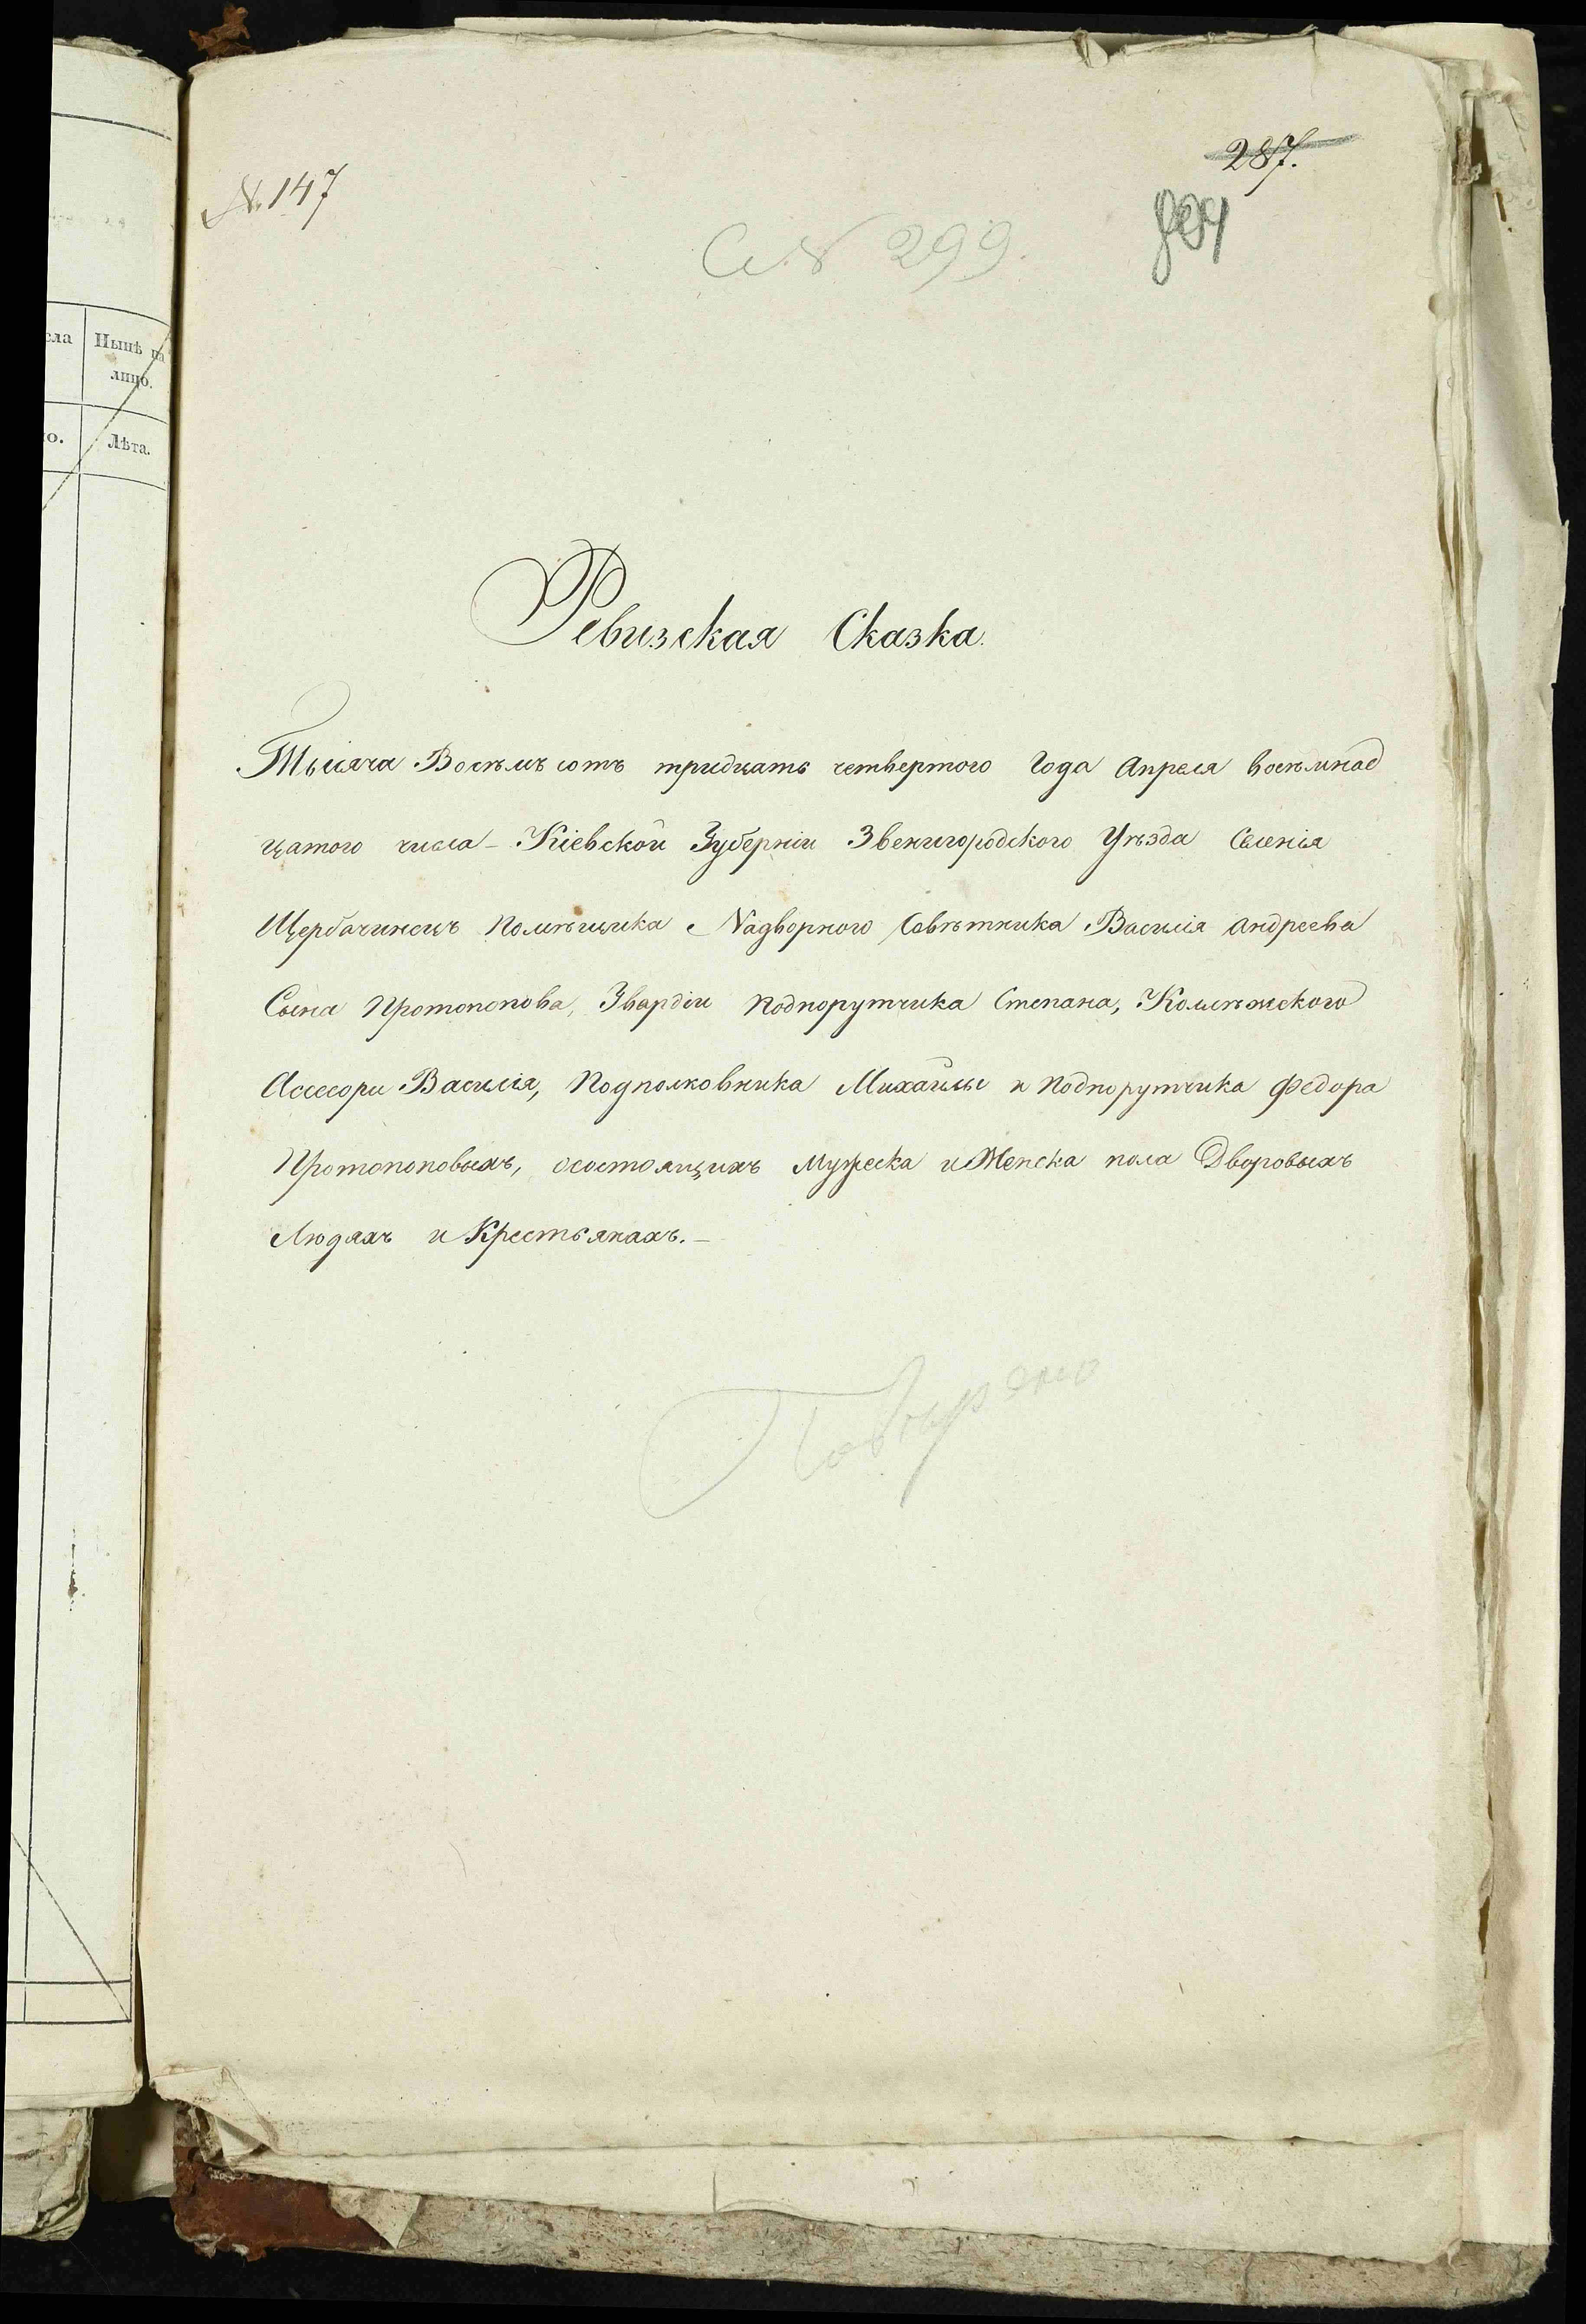 № 147
287.
С № 299.
сла
Нынѣ на
лицо.
о.
Лѣта.
Ревизская Сказка.
Тысяча Восѣмъ сотъ тридцать четвертого Года Апреля восѣмнад
цатого числа - Кіевской Губерніи Звенигородского Уѣзда Селенія
Щербачинецъ Помѣщика Надворного Совѣтника Василія Андреева
Сына Протопопова, Гвардіи Подпорутчика Степана, Колѣжского
Асесора Василія, Подполковника Михайлы и Подпорутчика Федора
Протопоповыхъ, осостоящихъ Мужеска и Женска пола Дворовыхъ
Людяхъ и Крестьянахъ. -
Повѣрено